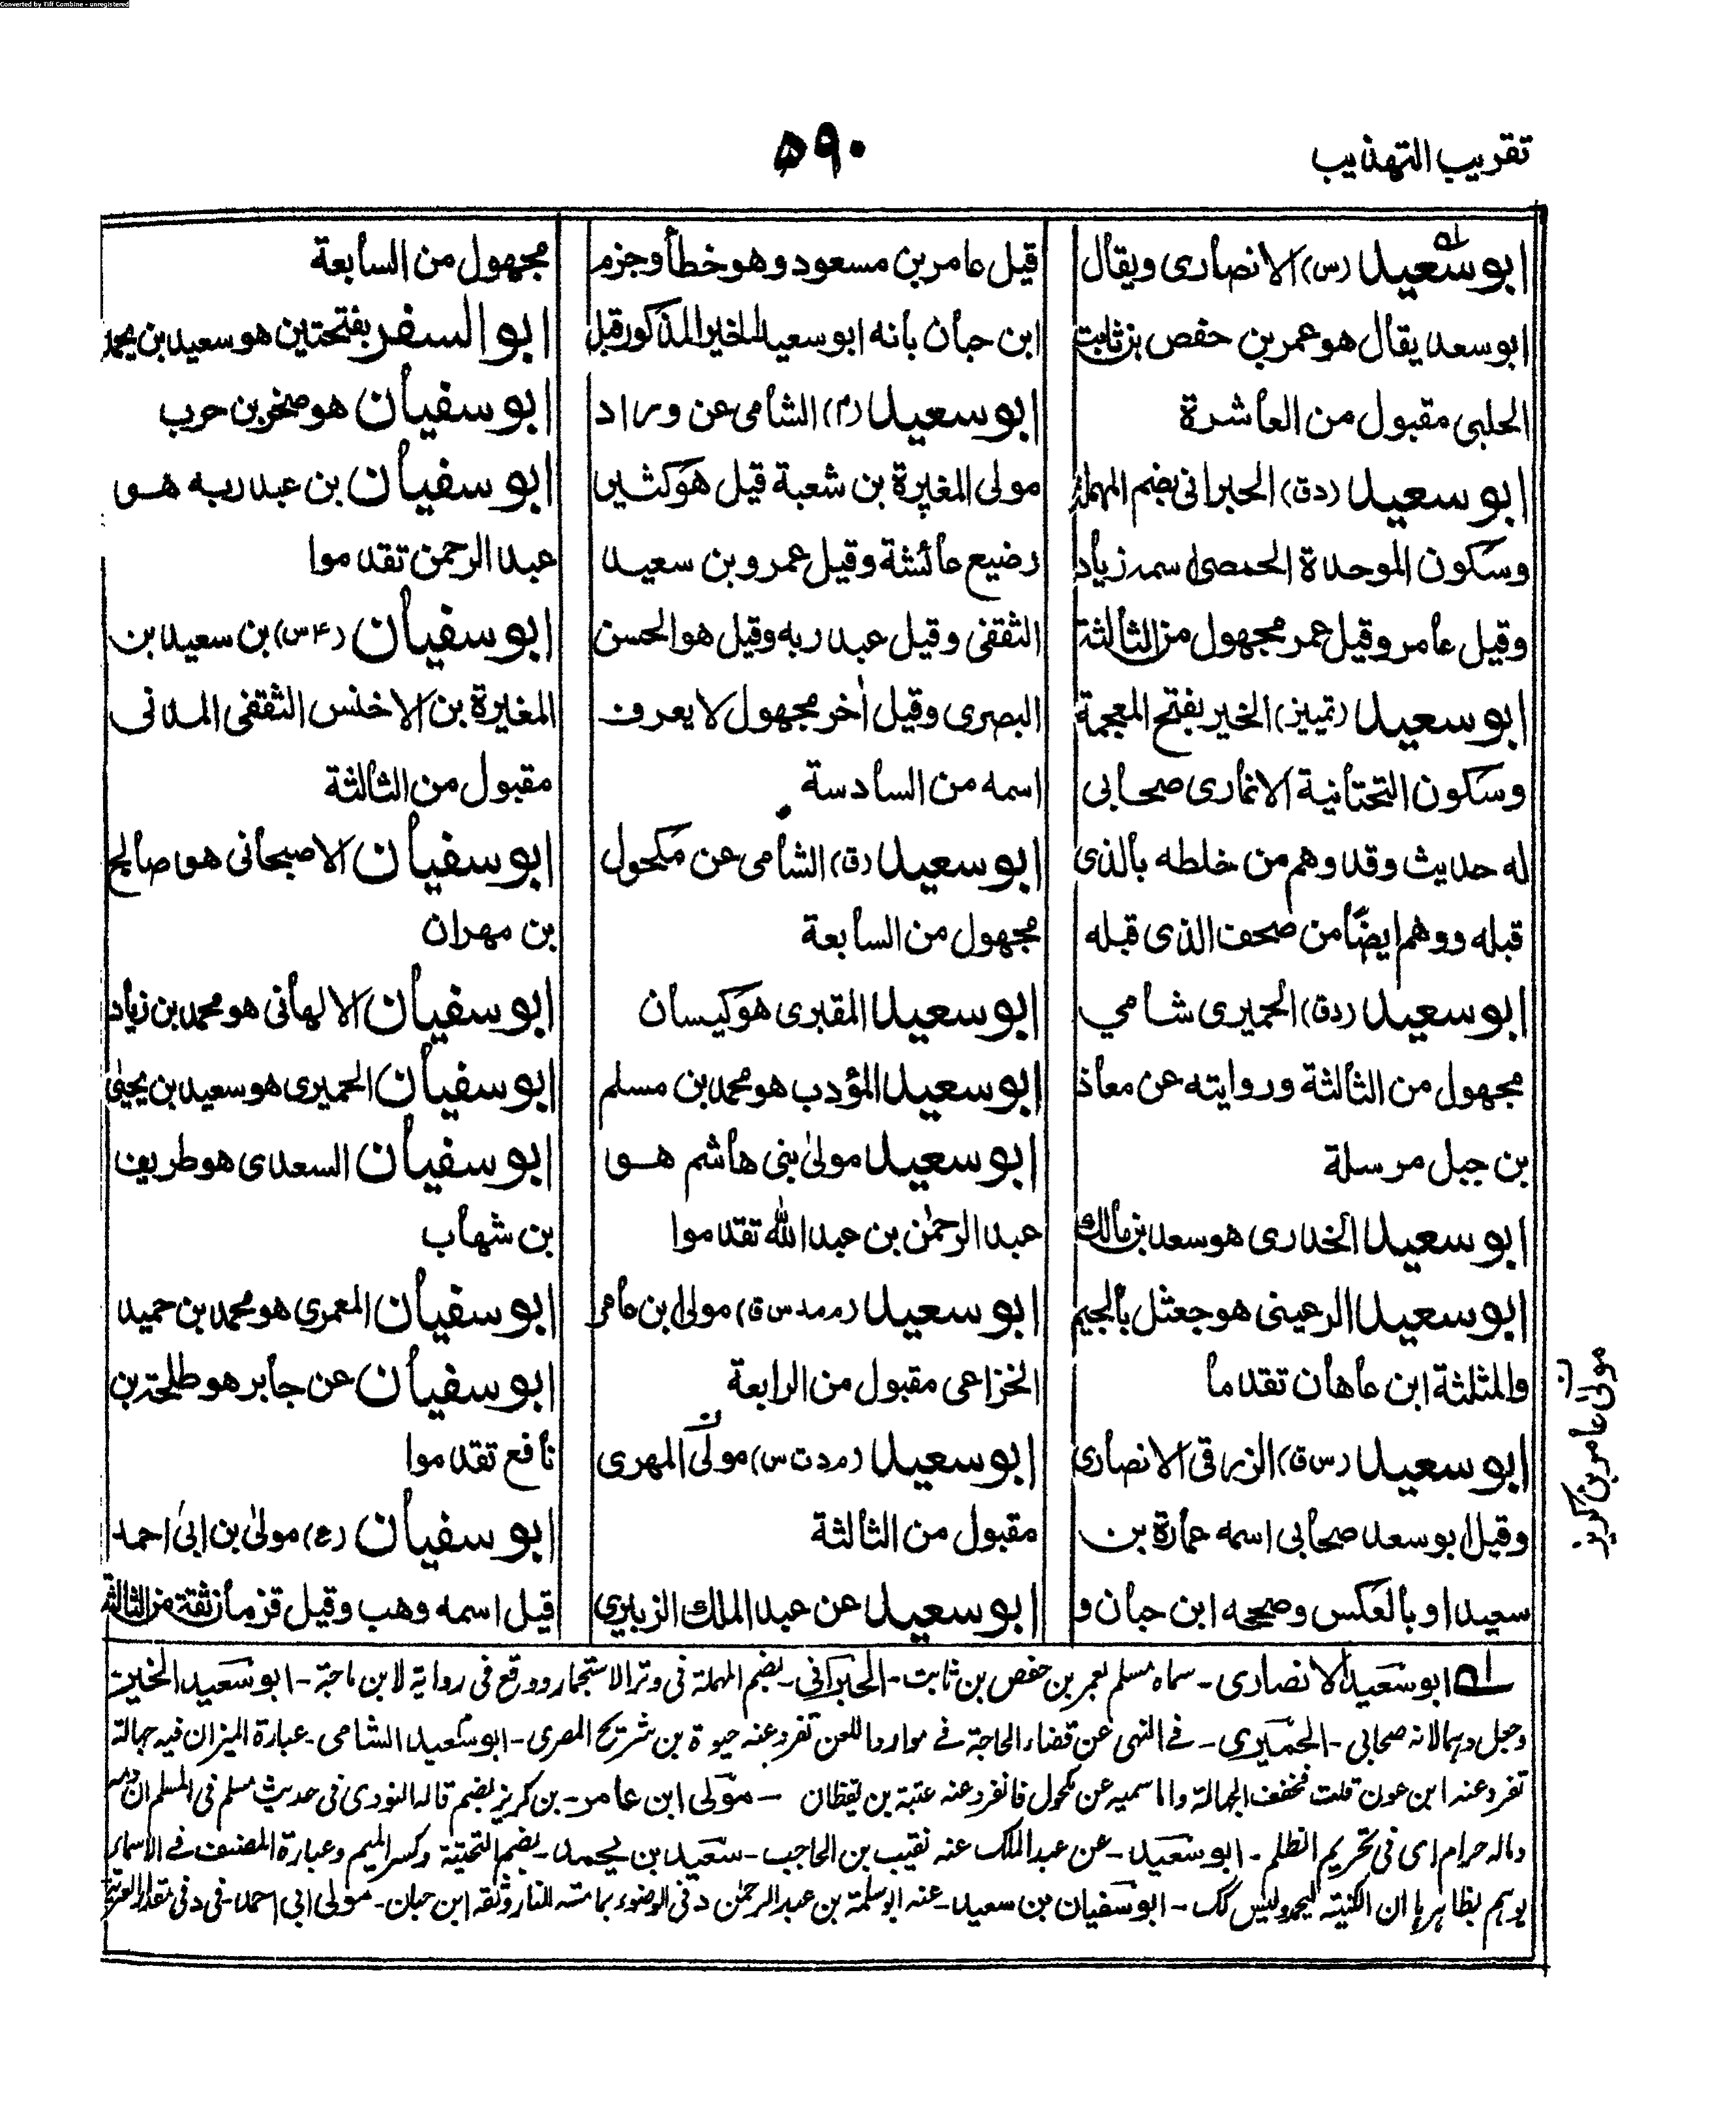 Converted by Tiff Combine - unregistered
تقريب التهذيب
۵۹۰
ابو سعيد (س) الانصارى ويقال
ابو سعد يقال هو عمر بن حفص بن ثابت
الحلبى مقبول من العاشرة
ابو سعيد (دق) الحبرانى بضم المهملة
وسكون الموحدة الحمصى اسمه زياد
وقيل عامر وقيل عمر مجهول من الثالثة
ابو سعيد (تمييز) الخير بفتح المعجمة
وسكون التحتانية الانمارى صحابى
له حديث وقد وهم من خلطه بالذى
قبله ووهم ايضا من صحف الذى قبله
ابو سعيد (دق) الحميرى شامي
مجهول من الثالثة وروايته عن معاذ
بن جبل مرسلة
ابو سعيد الخدارى هو سعد بن مالك
ابو سعيد الرعينى هو جعثل بالجيم
والمثلثة ابن عاهان تقدما
ابو سعيد (س ق) الزرقى الانصارى
وقيل ابو سعد صحابى اسمه عمارة بن
سعيد او بالعكس وصححه ابن حبان و
قيل عامر بن مسعود وهو خطأ وجزم
ابن حبان بانه ابو سعيد الخير المذكور قبل
ابو سعيد (م) الشامى عن وراد
مولى المغيرة بن شعبة قيل هو كثير
رضيع عائشة وقيل عمرو بن سعيد
الثقفى وقيل عبد ربه وقيل هو الحسن
البصرى وقيل أخر مجهول لا يعرف
اسمه من السادسة
ابو سعيد (ق) الشامى عن مكحول
مجهول من السابعة
ابو سعيد المقبرى هو كيسان
ابو سعيد المؤدب هو محمد بن مسلم
ابو سعيد مولىٰ بنى هاشم هو
عبد الرحمٰن بن عبد الله تقدموا
ابو سعيد (م مد س ق) مولى ابن عامر
الخزاعى مقبول من الرابعة
ابو سعيد (م د ت س) مولى المهرى
مقبول من الثالثة
ابو سعيد عن عبد الملك الزبيري
مجهول من السابعة
ابو السفر بفتحتين هو سعيد بن يحمد
ابو سفيان هو صخر بن حرب
ابو سفيان بن عبد ربه هو
عبد الرحمن تقدموا
ابو سفيان (۴ س) بن سعيد بن
المغيرة بن الاخنس الثقفى المدنى
مقبول من الثالثة
ابو سفيان الاصبحانى هو صالح
بن مهران
ابو سفيان الالهانى هو محمد بن زياد
ابو سفيان الحميرى هو سعيد بن يحيىٰ
ابو سفيان السعدى هو طريف
بن شهاب
ابو سفيان المعمري هو محمد بن حميد
ابو سفيان عن جابر هو طلحة بن
نافع تقدموا
ابو سفيان (ع) مولىٰ بن ابى احمد
قيل اسمه وهب وقيل قزمان ثقة من الثالثة
مولى عامر بن كريز
له ابو سعيد الانصارى - سماه مسلم لعمر بن حفص بن ثابت - الحبرانى - بضم المهملة فى وتر الاستجمار ووقع فى رواية لابن ماجة - ابو سعيد الخير
وجعل وہما لانه صحابى - الحميرى - فى النهى عن قضاء الحاجة فى موارد اللعن تفرد عنه حيوة بن شريح المصرى - ابو سعيد الشامى - عبارة الميزان فيه جهالة
تفرد عنه ابن عون قلت فخفف الجهالة واما سميه عن مكحول فانفرد عنه عتبة بن يقظان - مولى ابن عامر - بن كريز بضم قاله النووى فى حديث مسلم فى المسلم ان دمه
وماله حرام اى فى تحريم الظلم - ابو سعيد - عن عبد الملك عنه نقيب بن الحاجب - سعيد بن يحمد - بضم التحتية وكسر الميم وعبارة المصنف فى الاسماء
يوہم بظاہرہا ان الكنية ليحمد وليس كك - ابو سفيان بن سعيد - عنه ابو سلمة بن عبد الرحمٰن د فى الوضوء بما مسته النار وثقه ابن حبان - مولى ابى احمد - فى د فى مقدار العرية